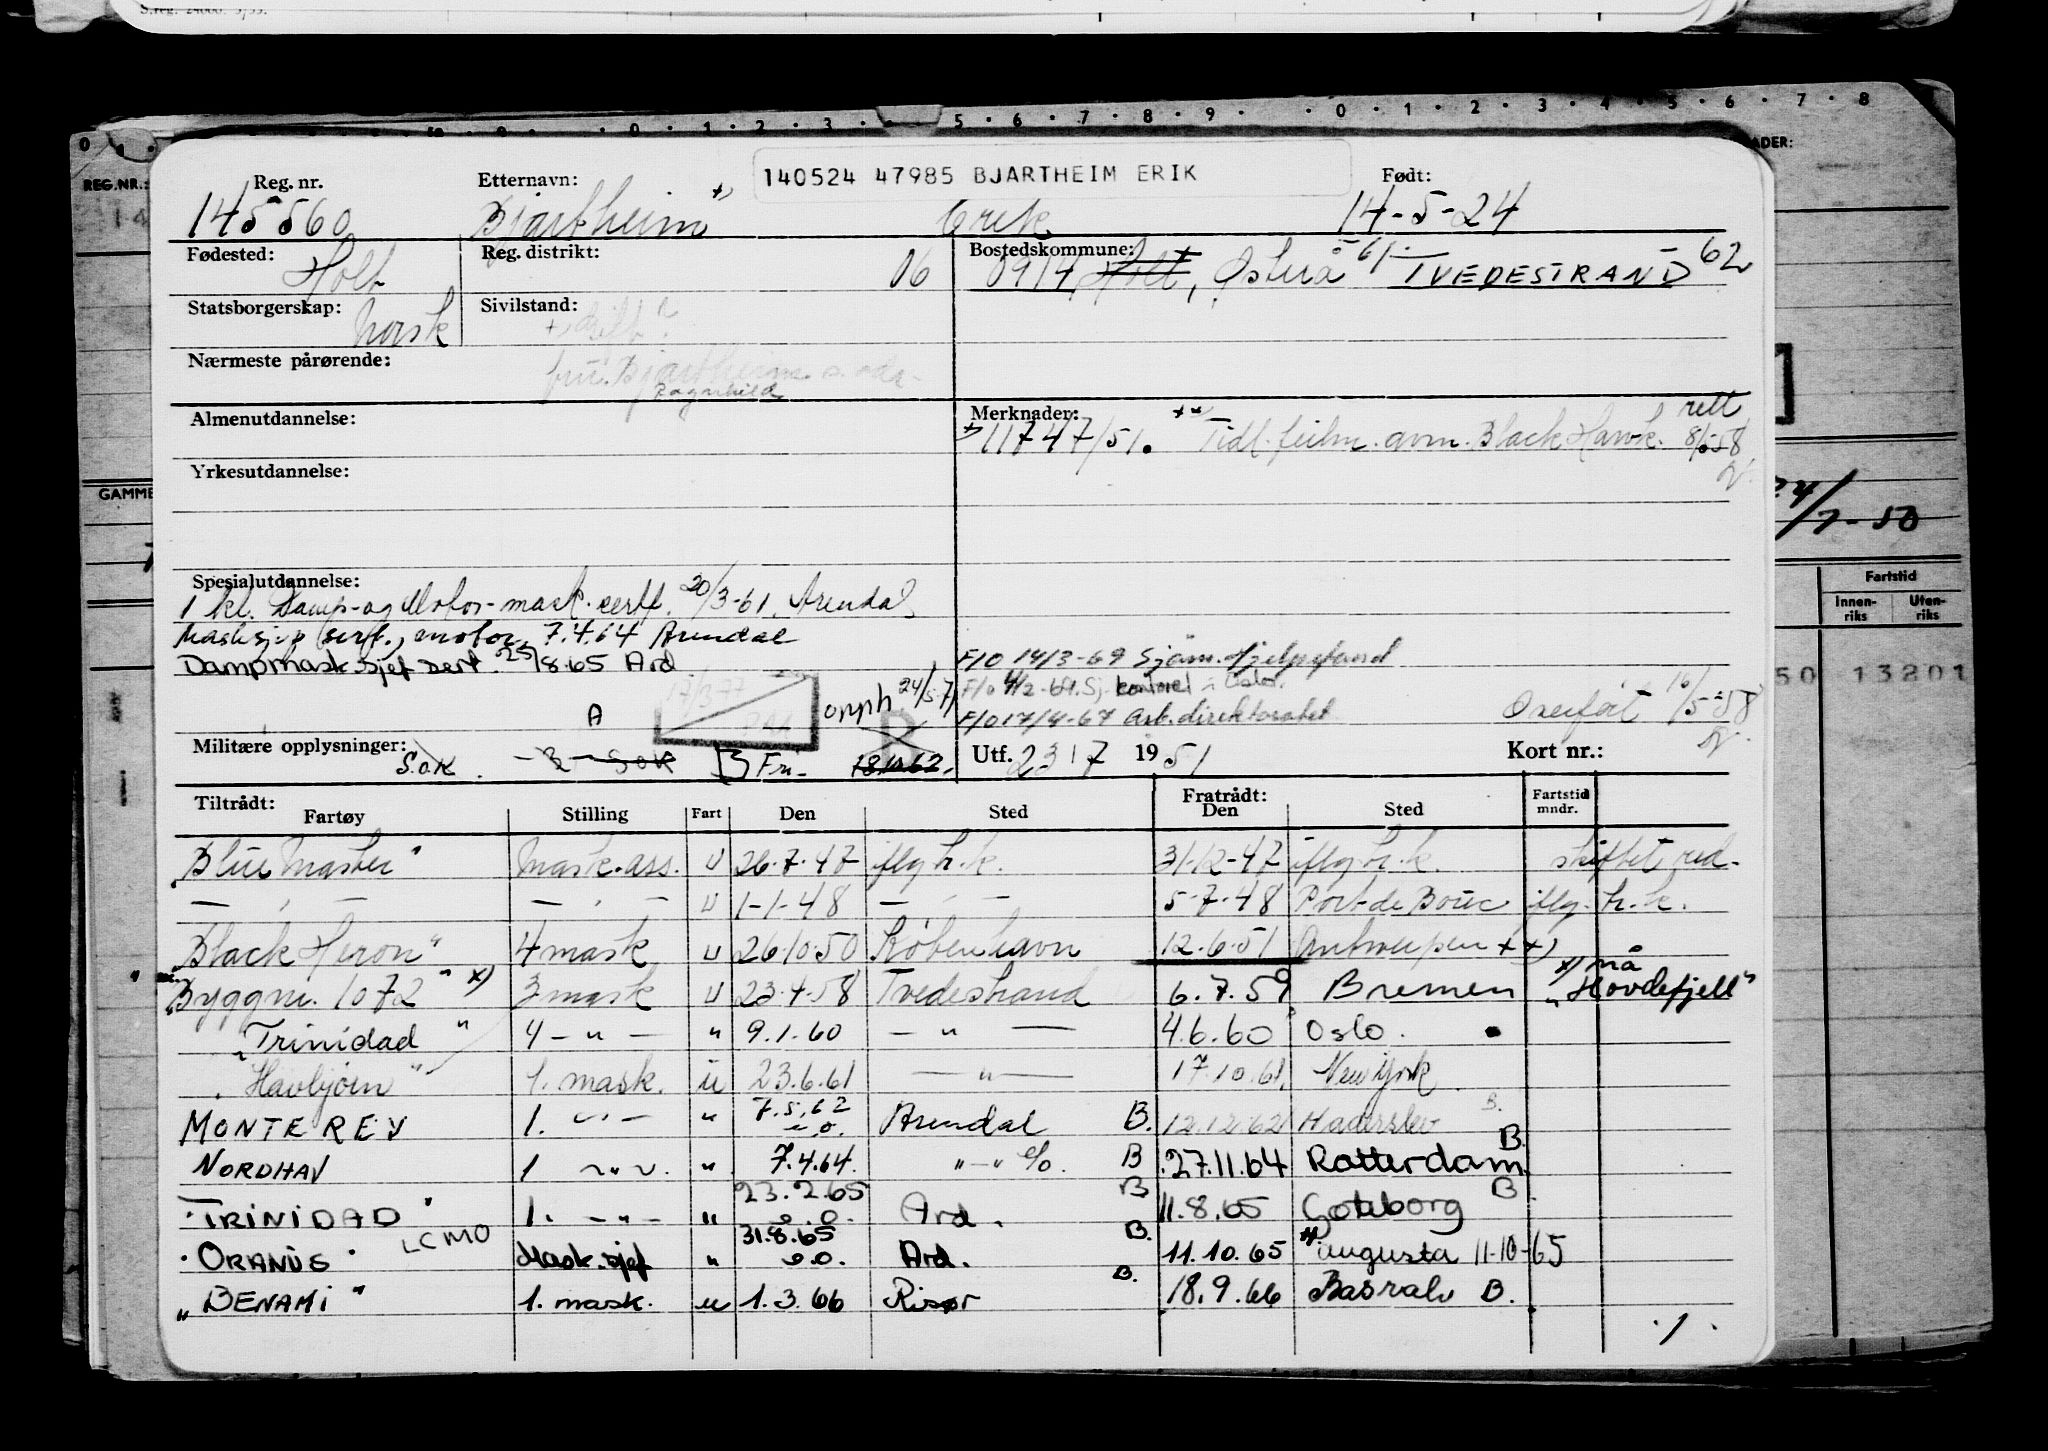 REG.NR.:
140524 47985 BJARTHEIM ERIK
Reg. nr. Etternavn: Født:
145560 Bjartheim x) Erik 14-5-24
Fødested: Reg. distrikt: Bostedskommune:
Holt 06 0914 Holt, Østerå -61 TVEDESTRAND 62
Statsborgerskap: Sivilstand:
Norsk
Nærmeste pårørende:
fru Bjartheim
Ragnhild
Almenutdannelse: Merknader:
x) 11747/51. Tidl. feilm. avm. Black Hawk. rett 8/5-58
Yrkesutdannelse:
GAMME
24/7-50
Fartstid
Innen-riks Uten-riks
50 13201
Spesialutdannelse:
1 kl. Damp- og Motor-mask. cert. 20/3-61. Arendal
Masksjef sert., motor, 7.4.64 Arendal
Dampmask.sjef sert. 25/8.65 Ard
F/O 14/3-69 Sjøm. Hjelpefond
F/O 4/2-69. Sj. kontrol i Oslo.
17/3-77 A onph 24/5-71
F/O 17/4-67 Arb. direktoratet Overført 16/5-58
Militære opplysninger: S.O.K. - B - SOK B Fri- 18.10.62. Utf. 23/7 1951 Kort nr.:
Tiltrådt: Fratrådt:
Fartøy Stilling Fart Den Sted Den Sted Fartstid mndr.
Blue Master" Mask.ass. U 26.7.47 iflg. h.k. 31.12-47 iflg. h.k. skiftet red-
— " — — " — U 1-1-48 — " — 5-7-48 Port de Bouc iflg. h.k.
Black Heron" 4 mask U 26.10.50 København 12.6.51 Antwerpen x x)
"Byggnr. 1072" x) 3 mask U 23.4.58 Tvedestrand 6.7.59 Bremen x) nå "Hovdefjell"
"Trinidad" 4 - " - " 9.1.60 — " — 4.6.60 Oslo.
"Havbjørn" 1. mask. u 23.6.61 — " — 17.10.61. New York
MONTEREY 1. - " - " 7.5.62 e.o. Arendal B. 12.12.62 Haderslev B.
NORDHAV 1 - " - " 7.4.64. " - " e/o. B 27.11.64 Rotterdam B.
"TRINIDAD" 1. - " - " 23.2.65 e.o. Ard. B 11.8.65 Goteborg B
"ORANUS" LCMO Mask.sjef " 31.8.65 e.o. Ard. B. 11.10.65 "augusta 11-10-65
"BENAMI" 1. mask. u 1.3.66 Risør B. 18.9.66 Basrah B.
1.